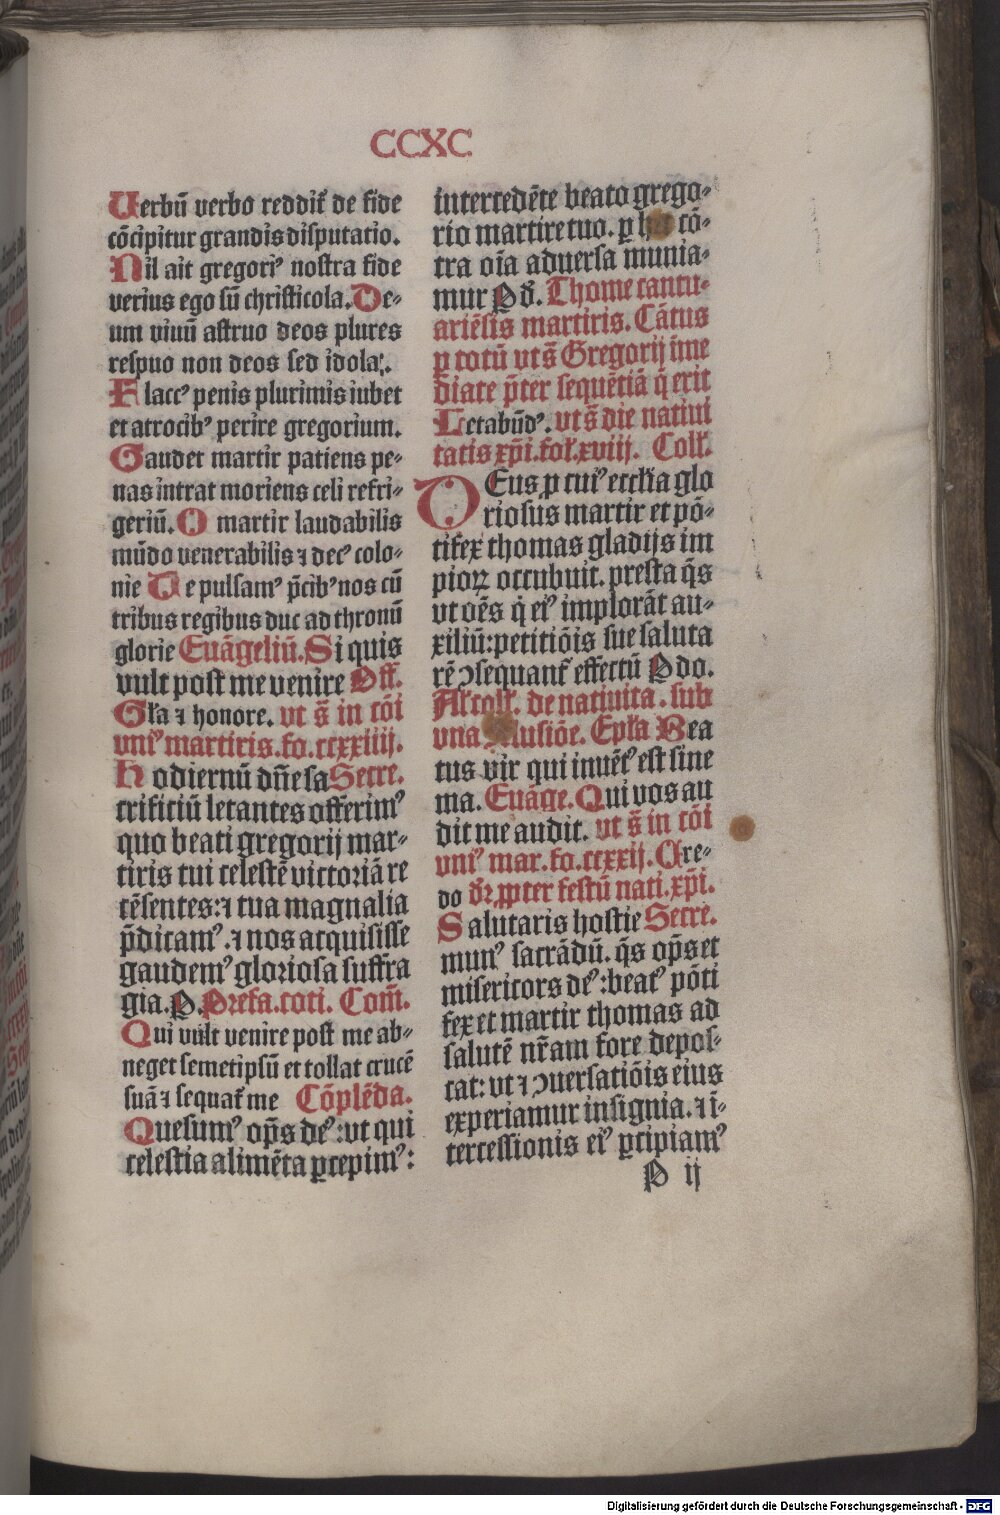 CCXC
Verbū verbo reddit᷑ de fide
cōcipitur grandis disputatio.
Nil ait gregori⁹ nostra fide
verius ego sū christicola. De-
um viuū astruo deos plures
respuo non deos sed idola.
Flacc⁹ penis plurimis iubet
et atrocib⁹ perire gregorium.
Gaudet martir patiens pe-
nas intrat moriens celi refri-
geriū. O martir laudabilis
mūdo venerabilis ⁊ dec⁹ colo-
nie De pulsam⁹ p̄cib⁹ nos cū
tribus regibus duc ad thronū
glorie Euāgeliū. Si quis
vult post me venire Off̄.
Gl̄a ⁊ honore. vt s̄ in cōi
vni⁹ martiris. fo. ccxxiiij.
Hodiernū dn̄e sa Secre.
crificiū letantes offerim⁹
quo beati gregorij mar-
tiris tui celestē victoriā re
cēsentes: ⁊ tua magnalia
p̄dicam⁹. ⁊ nos acquisisse
gaudem⁹ gloriosa suffra
gia. P. Prefa. coti. Com̄.
Qui vult venire post me ab-
neget semetipsū et tollat crucē
suā ⁊ sequat᷑ me Cōplēda.
Quesum⁹ op̄s de⁹: vt qui
celestia alimēta ꝑcepim⁹:
intercedēte beato grego-
rio martire tuo. ꝑ hec cō-
tra oīa aduersa munia-
mur P d̄. Thome cantu-
ariēsis martiris. Cātus
ꝑ totū vt s̄ Gregorij īme
diate p̄ter sequētiā q̄ erit
Letabūd⁹. vt s̄ die natiui
tatis xp̄i. fol. xviij. Coll̄.
Deus ꝓ cui⁹ eccl̄ia glo
riosus martir et pō-
tifex thomas gladijs im
pioꝝ occubuit. presta q̄s
vt oēs q̇ ei⁹ implorāt au-
xiliū: petitiōis sue saluta
rē ꝯsequant᷑ effectū P do.
Al̄ coll̄. de natiuita. sub
vna ꝯclusiōe. Epl̄a Bea
tus vir qui inuēt⁹ est sine
ma. Euāge. Qui vos au
dit me audit. vt s̄ in cōi
vni⁹ mar. fo. ccxxij. Cre-
do dr̄ ꝓpter festū nati. xp̄i.
Salutaris hostie Secre.
mun⁹ sacrādū. q̄s op̄s et
misericors de⁹: beat⁹ pōti
fex et martir thomas ad
salutē nr̄am fore depos-
cat: vt ⁊ ꝯuersatiōis eius
experiamur insignia. ⁊ ī-
tercessionis ei⁹ ꝑcipiam⁹
P ij
Digitalisierung gefördert durch die Deutsche Forschungsgemeinschaft - DFG